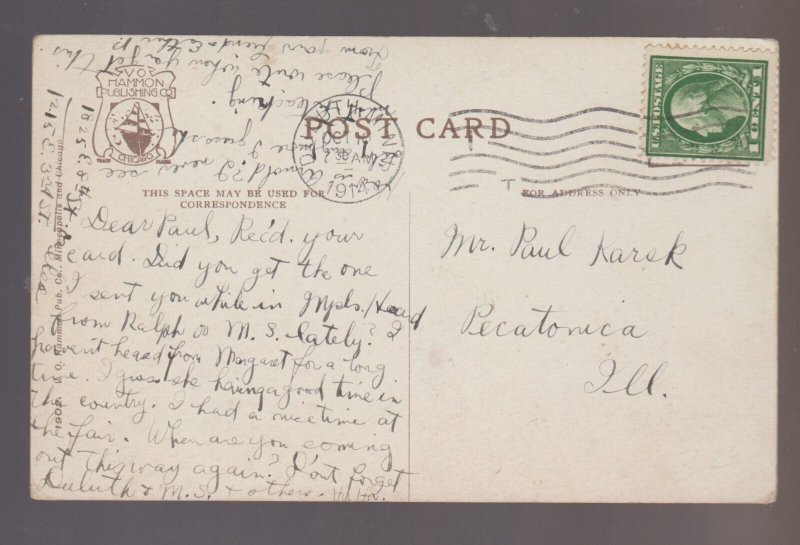 V.O.
HAMMON
PUBLISHING CO
CHICAGO
TRADE MARK
POST CARD
THIS SPACE MAY BE USED FOR
CORRESPONDENCE
FOR ADDRESS ONLY
OCT
7 30 AM
1914
U.S. POSTAGE
1 CENT 1
1902. V. O. Hammon Pub. Co., Minneapolis and Chicago
Dear Paul, Rec'd. your
card. Did you get the one
I sent you while in Mpls. Heard
from Ralph or M. S. lately? I
haven't heard from Margaret for a long
time. I guess she having a good time in
the country. I had a nice time at
the fair. When are you coming
out this way again? Don't forget
Duluth & M.S. & others. Ha Ha.
Arnold? I never see
more I guess she
teaching.
Please write when you get this
From your friend
1215 E. 3rd St.
1825 E
Mr. Paul Karsk
Pecatonica
Ill.